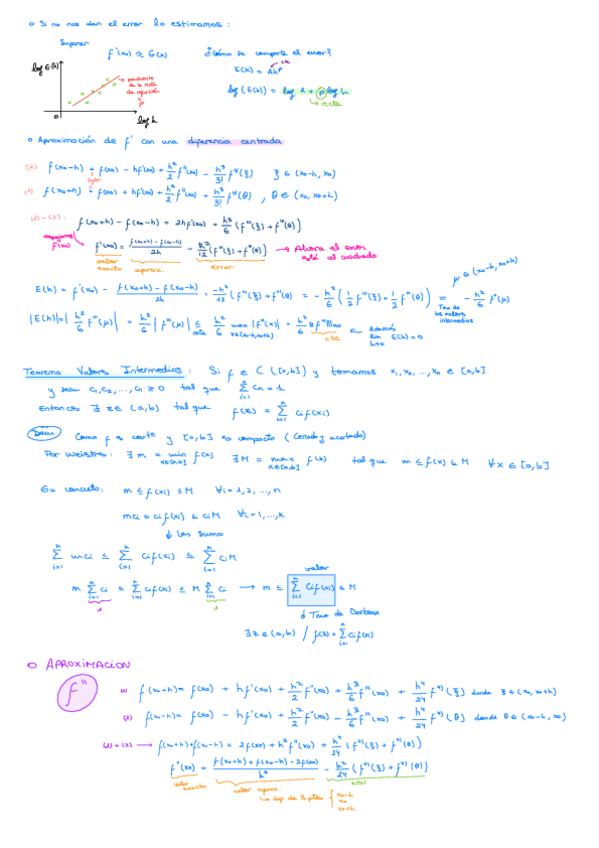 o Si no nos dan el error lo estimamos:
Suponer f'(x₀) ≃ G(x) ¿Cómo se comporta el error?
log E(h)
pendiente de la recta de regresión = p
0
log h
E(h) = Ahᵖ
cte
log(E(h)) = log A + p log h
recta
o Aproximación de f' con una diferencia centrada
(2) f(x₀-h) = f(x₀) - hf'(x₀) + h²/2 f''(x₀) - h³/3! f'''(ξ) ξ ∈ (x₀-h, x₀)
(1) f(x₀+h) = f(x₀) + hf'(x₀) + h²/2 f''(x₀) + h³/3! f'''(θ), θ ∈ (x₀, x₀+h)
(1)-(2): f(x₀+h) - f(x₀-h) = 2hf'(x₀) + h³/6 (f'''(ξ) + f'''(θ))
despejamos f'(x₀)
f'(x₀) = f(x₀+h) - f(x₀-h) / 2h - h²/12 (f'''(ξ) + f'''(θ)) → Ahora el error está al cuadrado
valor exacto aprox. error
μ ∈ (x₀-h, x₀+h)
E(h) = f'(x₀) - f(x₀+h) - f(x₀-h) / 2h = -h²/12 (f'''(ξ) + f'''(θ)) = - h²/6 (1/2 f'''(ξ) + 1/2 f'''(θ)) = - h²/6 f'''(μ)
Tma de los valores intermedios
|E(h)| = |h²/6 f'''(μ)| = h²/6 |f'''(μ)| ≤ h²/6 max |f'''(x)| = h²/6 ‖f'''‖∞ ← Además lim E(h) = 0
cota x∈(x₀-h, x₀+h) cte h→0
Teorema Valores Intermedios: Si f ∈ C([a,b]) y tomamos x₁, x₂, ..., xₙ ∈ [a,b]
y sean c₁, c₂, ..., cₙ ≥ 0 tal que Σ cₙ = 1
Entonces ∃ z ∈ (a,b) tal que f(z) = Σ cᵢf(xᵢ)
Dem Como f es conte y [a,b] es compacto (cerrado y acotado)
Por Weistrss: ∃ m = min f(x) ∃ M = max f(x) tal que m ≤ f(x) ≤ M ∀x ∈ [a,b]
x∈[a,b] x∈[a,b]
En concreto: m ≤ f(xᵢ) ≤ M ∀i = 1, 2, ..., n
mcᵢ ≤ cᵢf(xᵢ) ≤ cᵢM ∀i = 1, ..., n
↓ Los sumo
Σ mcᵢ ≤ Σ cᵢf(xᵢ) ≤ Σ cᵢM
valor
m Σ cᵢ ≤ Σ cᵢf(xᵢ) ≤ M Σ cᵢ → m ≤ Σ cᵢf(xᵢ) ≤ M
1 1
↓ Tma de Darboux
∃ z ∈ (a,b) / f(z) = Σ cᵢf(xᵢ)
O APROXIMACION
f''
(1) f(x₀+h) = f(x₀) + hf'(x₀) + h²/2 f''(x₀) + h³/6 f'''(x₀) + h⁴/24 f⁴⁾(ξ) donde ξ ∈ (x₀, x₀+h)
(2) f(x₀-h) = f(x₀) - hf'(x₀) + h²/2 f''(x₀) - h³/6 f'''(x₀) + h⁴/24 f⁴⁾(θ) donde θ ∈ (x₀-h, x₀)
(1)+(2) → f(x₀+h) + f(x₀-h) = 2f(x₀) + h²f''(x₀) + h⁴/24 (f⁴⁾(ξ) + f⁴⁾(θ))
f''(x₀) = f(x₀+h) + f(x₀-h) - 2f(x₀) / h² - h²/24 (f⁴⁾(ξ) + f⁴⁾(θ))
valor exacto valor aprox. error
→ dep de 3 ptos { x₀-h
x₀
x₀+h